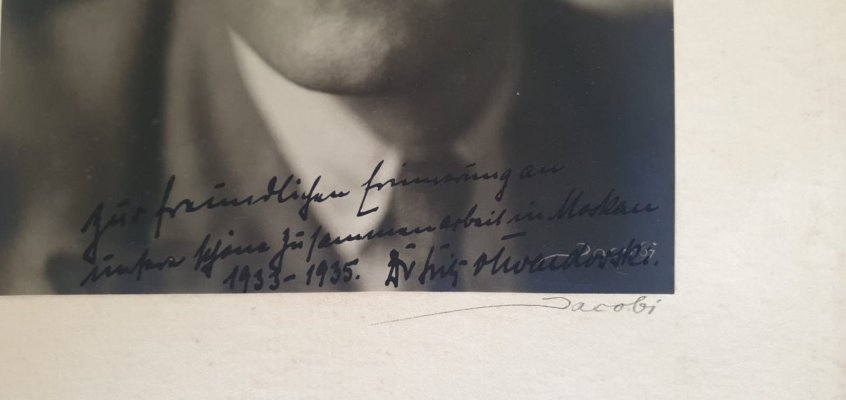 zur freundlichen Erinnerung an
unsere schöne Zusammenarbeit in Moskau
1933-1935. Dr Fritz
Jacobi